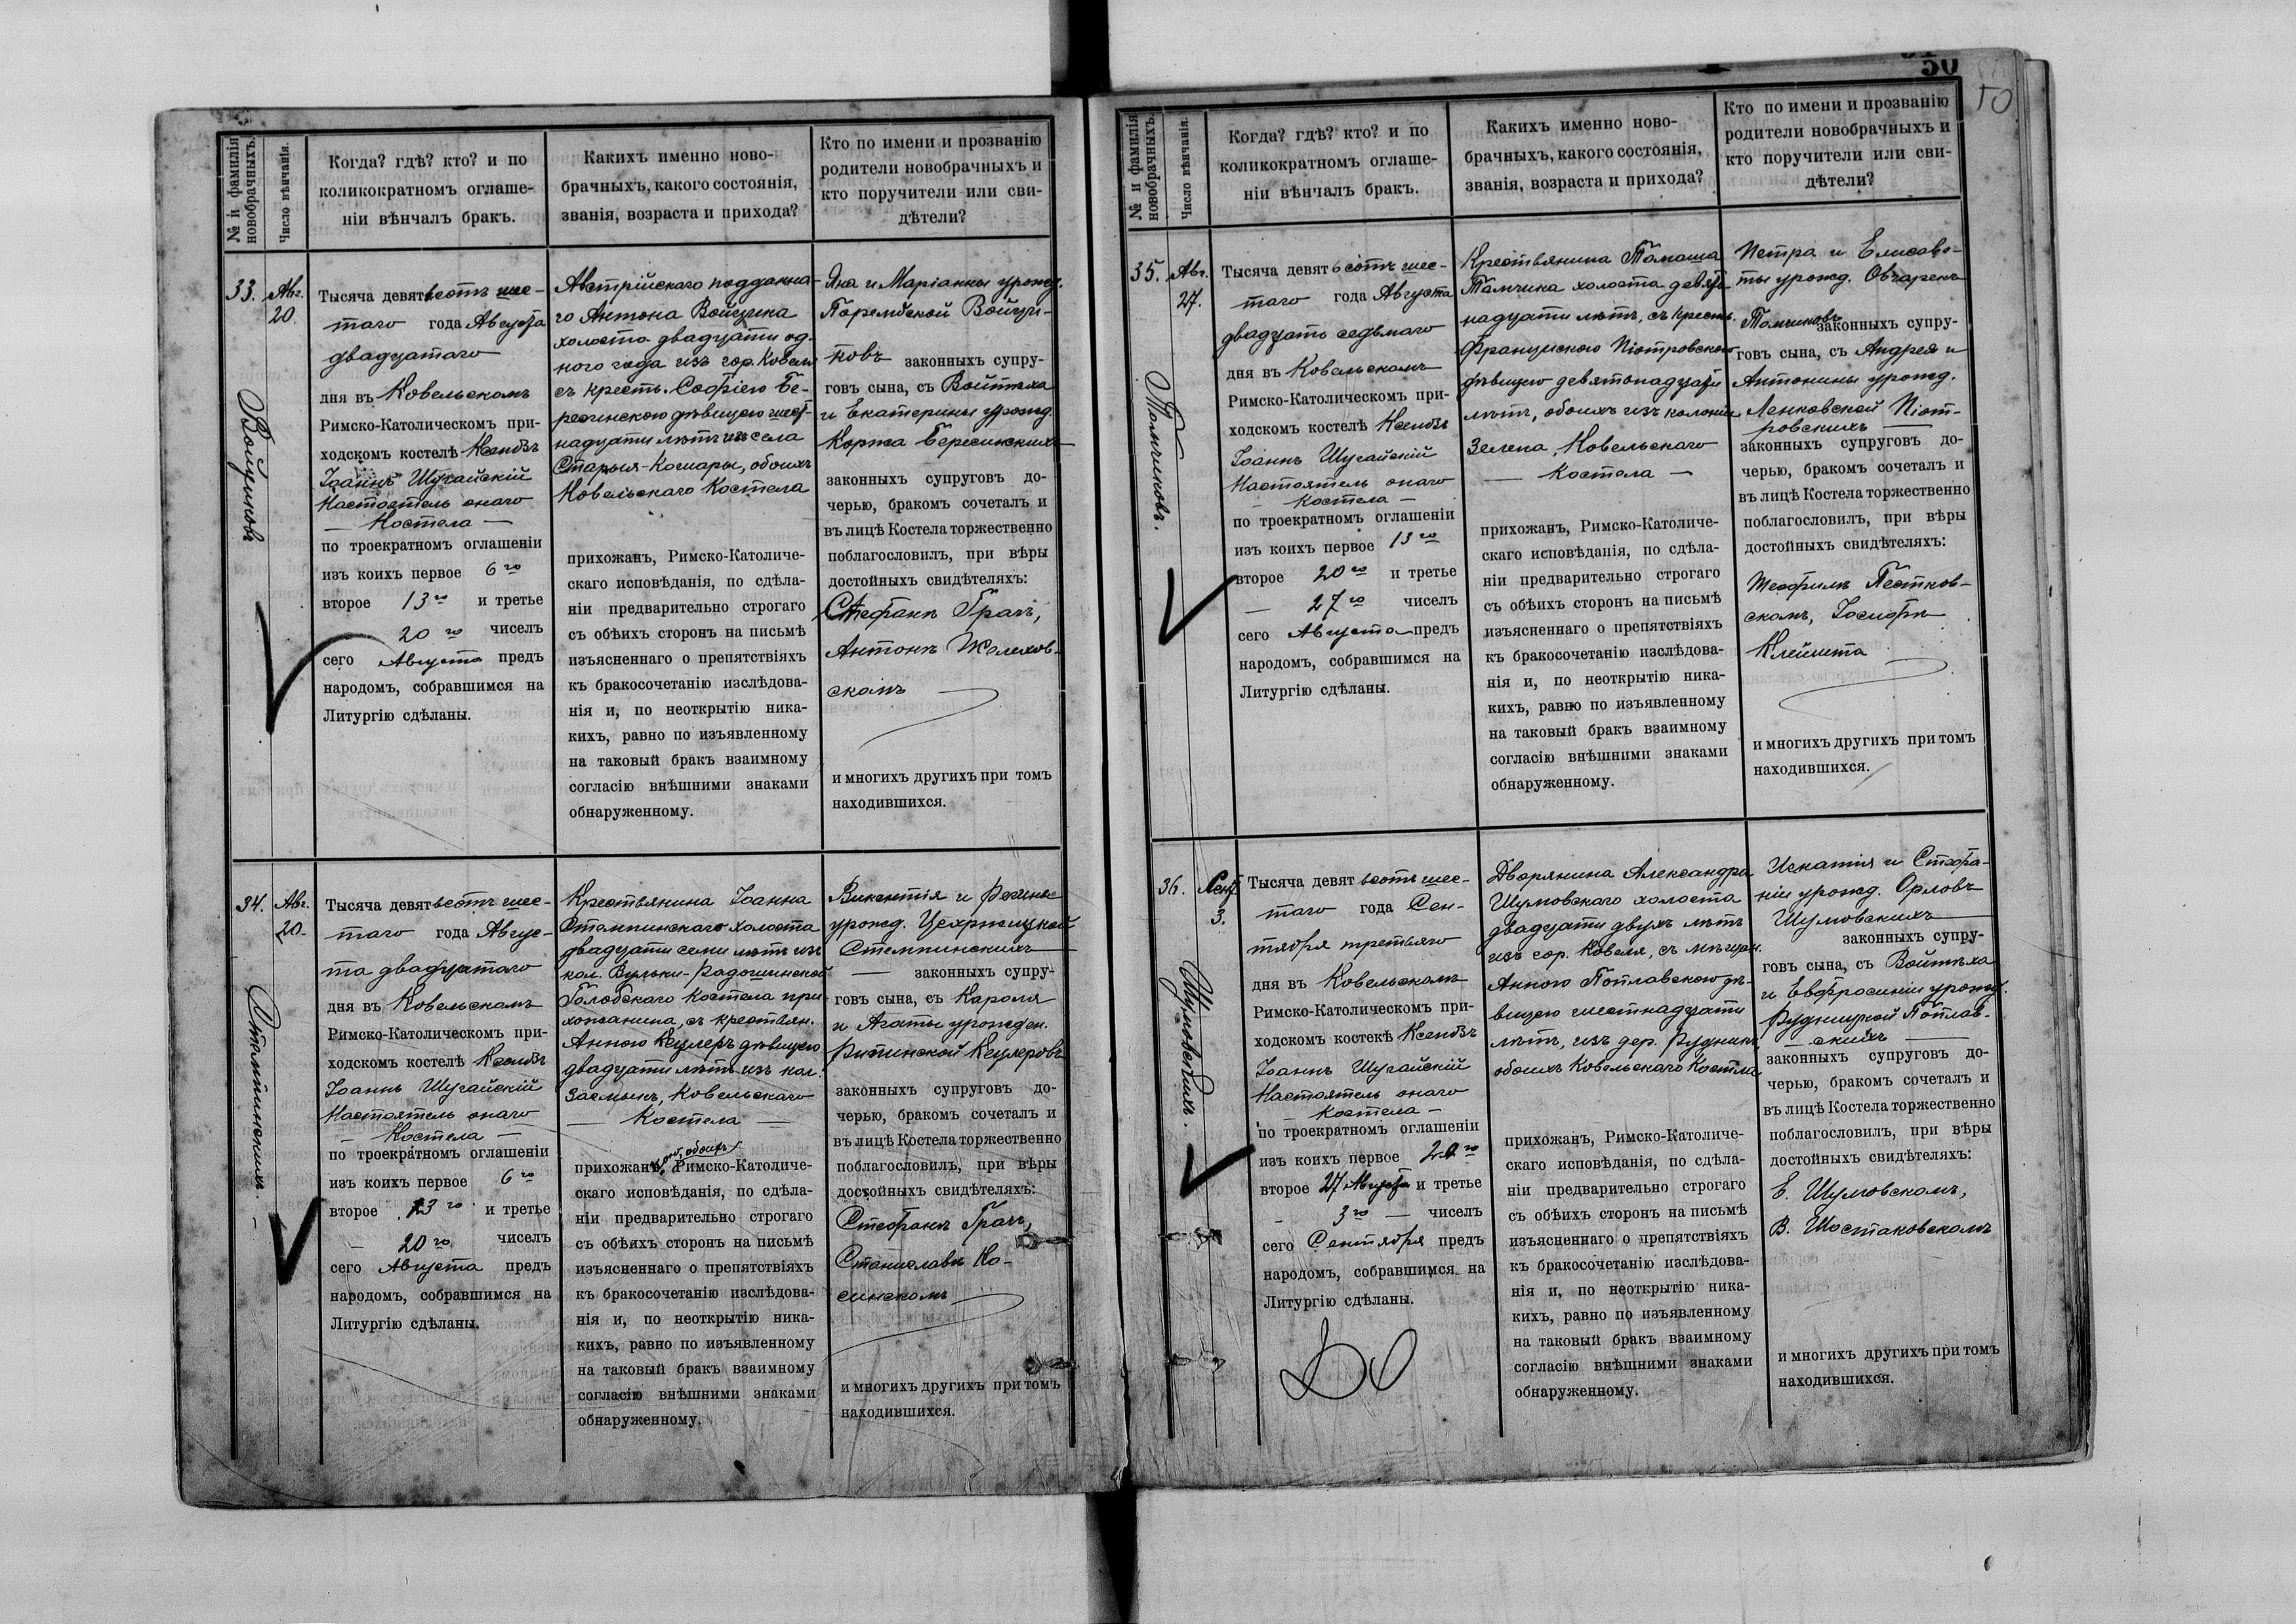 № и фамилія
новобрачныхъ.
Число вѣнчанія.
Когда? гдѣ? кто? и по
коликократномъ оглаше-
ніи вѣнчалъ бракъ.
Какихъ именно ново-
брачныхъ, какого состоянія,
званія, возраста и прихода?
Кто по имени и прозванію
родители новобрачныхъ и
кто поручители или сви-
дѣтели?
33.
Войциковъ
Авг.
20.
Тысяча девятьсотъ шес-
таго года Августа
двадцатаго
дня въ Ковельскомъ
Римско-Католическомъ при-
ходскомъ костелѣ Ксендзъ
Іоаннъ Шугайскій
Настоятель онаго
— Костела —
по троекратномъ оглашеніи
изъ коихъ первое 6го
второе 13го и третье
20го чиселъ
сего Августа предъ
народомъ, собравшимся на
Литургію сдѣланы.
Австрійскаго поддана-
го Антона Войцика
холоста двадцати од-
ного года изъ гор. Ковеля
съ крест. Софіею Бе-
ресинскою дѣвицею шест-
надцати лѣтъ изъ села
Старыя-Кошары, обоихъ
Ковельскаго Костела
прихожанъ, Римско-Католиче-
скаго исповѣданія, по сдѣла-
ніи предварительно строгаго
съ обѣихъ сторонъ на письмѣ
изъясненнаго о препятствіяхъ
къ бракосочетанію изслѣдова-
нія и, по неоткрытію ника-
кихъ, равно по изъявленному
на таковый бракъ взаимному
согласію внѣшними знаками
обнаруженному.
Яна и Маріанны урожд.
Порембской Войци-
ковъ законныхъ супру-
говъ сына, съ Войтеха
и Екатерины урожд.
Коржа Бересинскихъ
законныхъ супруговъ до-
черью, бракомъ сочеталъ и
въ лицѣ Костела торжественно
поблагословилъ, при вѣры
достойныхъ свидѣтеляхъ:
Стефанѣ Грачъ,
Антонѣ Желехов-
скомъ
и многихъ другихъ при томъ
находившихся.
34.
Стемпинскихъ.
Авг.
20.
Тысяча девятьсотъ шес-
таго года Авгус-
та двадцатаго
дня въ Ковельскомъ
Римско-Католическомъ при-
ходскомъ костелѣ Ксендзъ
Іоаннъ Шугайскій
Настоятель онаго
— Костела —
по троекратномъ оглашеніи
изъ коихъ первое 6го
второе 13го и третье
— 20го чиселъ
сего Августа предъ
народомъ, собравшимся на
Литургію сдѣланы.
Крестьянина Іоанна
Стемпинскаго холоста
двадцати семи лѣтъ изъ
кол. Вульки-Радошинской
Голобскаго Костела при-
хожанина, съ крестьян.
Анною Кецлеръ дѣвицею
двадцати лѣтъ изъ кол.
Засмыкъ, Ковельскаго
— Костела —
прихожанъ, Римско-Католиче-
скаго исповѣданія, по сдѣла-
ніи предварительно строгаго
съ обѣихъ сторонъ на письмѣ
изъясненнаго о препятствіяхъ
къ бракосочетанію изслѣдова-
нія и, по неоткрытію ника-
кихъ, равно по изъявленному
на таковый бракъ взаимному
согласію внѣшними знаками
обнаруженному.
Викентія и Регины
урожд.
Стемпинскихъ
— законныхъ супру-
говъ сына, съ Кароля
и Агаты урожден.
Рипинской Кецлеровъ
законныхъ супруговъ до-
черью, бракомъ сочеталъ и
въ лицѣ Костела торжественно
поблагословилъ, при вѣры
достойныхъ свидѣтеляхъ:
Стефанѣ Грачъ,
Станиславѣ Ко-
синскомъ
и многихъ другихъ при томъ
находившихся.
50
50
№ и фамилія
новобрачныхъ.
Число вѣнчанія.
Когда? гдѣ? кто? и по
коликократномъ оглаше-
ніи вѣнчалъ бракъ.
Какихъ именно ново-
брачныхъ, какого состоянія,
званія, возраста и прихода?
Кто по имени и прозванію
родители новобрачныхъ и
кто поручители или сви-
дѣтели?
35.
Томчиковъ.
Авг.
27.
Тысяча девятьсотъ шес-
таго года Августа
двадцать седьмаго
дня въ Ковельскомъ
Римско-Католическомъ при-
ходскомъ костелѣ Ксендзъ
Іоаннъ Шугайскій
Настоятель онаго
— Костела —
по троекратномъ оглашеніи
изъ коихъ первое 13го
второе 20го и третье
— 27го чиселъ
сего Августа предъ
народомъ, собравшимся на
Литургію сдѣланы.
Крестьянина Томаша
Томчика холоста девят-
надцати лѣтъ, съ крест.
Францискою Піотровскою
дѣвицею девятонадцати
лѣтъ, обоихъ изъ колоніи
Зелена, Ковельскаго
— Костела —
прихожанъ, Римско-Католиче-
скаго исповѣданія, по сдѣла-
ніи предварительно строгаго
съ обѣихъ сторонъ на письмѣ
изъясненнаго о препятствіяхъ
къ бракосочетанію изслѣдова-
нія и, по неоткрытію ника-
кихъ, равно по изъявленному
на таковый бракъ взаимному
согласію внѣшними знаками
обнаруженному.
Петра и Елисаве-
ты урожд. Овчарекъ
Томчиковъ законныхъ супру-
говъ сына, съ Андрея и
Антонины урожд.
Ленковской Піот-
ровскихъ —
законныхъ супруговъ до-
черью, бракомъ сочеталъ и
въ лицѣ Костела торжественно
поблагословилъ, при вѣры
достойныхъ свидѣтеляхъ:
Теофилѣ Пестков-
скомъ, Іосифѣ
Клейшта
и многихъ другихъ при томъ
находившихся.
36.
Шумовскихъ.
Сент.
3.
Тысяча девятьсотъ шес-
таго года Сен-
тября третьяго
дня въ Ковельскомъ
Римско-Католическомъ при-
ходскомъ костекѣ Ксендзъ
Іоаннъ Шугайскій
Настоятель онаго
— Костела —
по троекратномъ оглашеніи
изъ коихъ первое 20го
второе 27 Августа и третье
— 3го — чиселъ
сего Сентября предъ
народомъ, собравшимся на
Литургію сдѣланы.
Дворянина Александра
Шумовскаго холоста
двадцати двухъ лѣтъ
изъ гор. Ковеля, съ мѣщан.
Анною Поплавскою дѣ-
вицею шестнадцати
лѣтъ, изъ дер. Рудники,
обоихъ Ковельскаго Костела
прихожанъ, Римско-Католиче-
скаго исповѣданія, по сдѣла-
ніи предварительно строгаго
съ обѣихъ сторонъ на письмѣ
изъясненнаго о препятствіяхъ
къ бракосочетанію изслѣдова-
нія и, по неоткрытію ника-
кихъ, равно по изъявленному
на таковый бракъ взаимному
согласію внѣшними знаками
обнаруженному.
Игнатія и Стефа-
ніи урожд. Орловъ
Шумовскихъ
законныхъ супру-
говъ сына, съ Войтѣха
и Евфросиніи урожд.
Рудницкой Поплав-
— скихъ —
законныхъ супруговъ до-
черью, бракомъ сочеталъ и
въ лицѣ Костела торжественно
поблагословилъ, при вѣры
достойныхъ свидѣтеляхъ:
Е. Шумовскомъ,
В. Шостаковскомъ
и многихъ другихъ при томъ
находившихся.